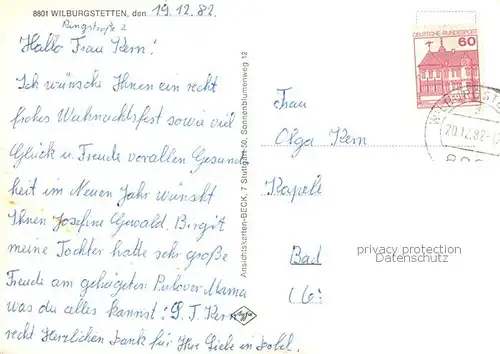 8801 WILBURGSTETTEN, den 19.12.82
Ringstraße 2
Hallo Frau Kern!
Ich wünsche Ihnen ein recht
frohes Weihnachtsfest sowie viel
Glück u. Freude vorallen Gesund
heit im Neuen Jahr wünscht
Ihnen Josefine Gewald. Birgit
meine Tochter hatte sehr große
Freude am gehäkelten Pulover. Mama
was du alles kannst! Fr. Kern
recht Herzlichen Dank für Ihre Liebe in
Ansichtskarten-BECK, 7 Stuttgart 50, Sonnenblumenweg 12
Agfa
60
DEUTSCHE BUNDESPOST
20.12.82
Frau
Olga Kern
Kapell
Bad
privacy protection
Datenschutz